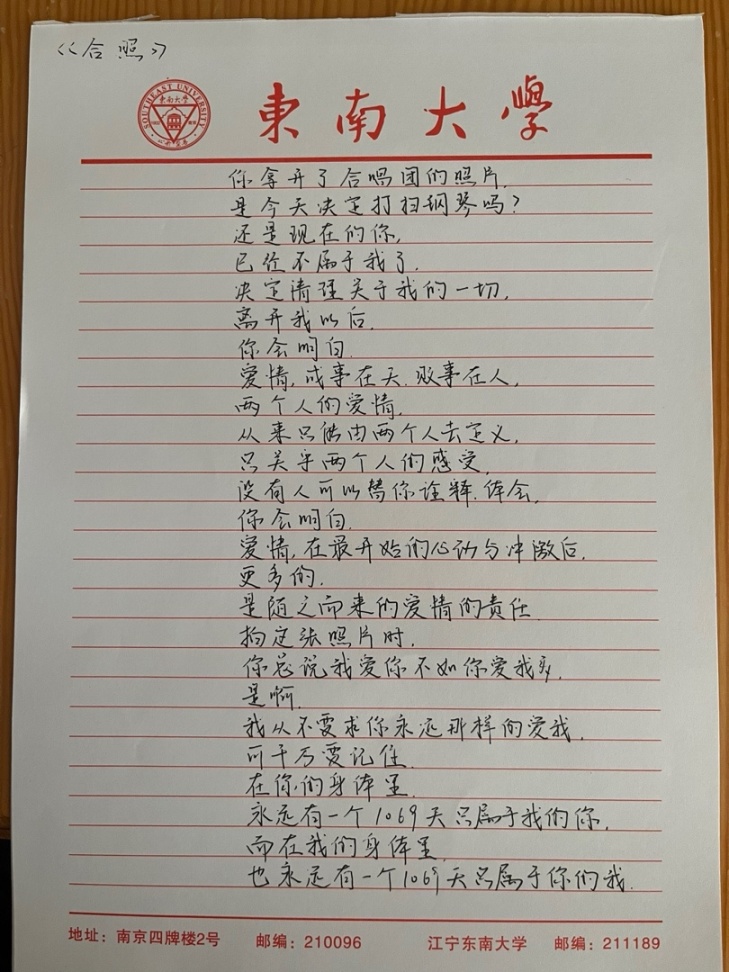 《合照》
SOUTHEAST UNIVERSITY
東南大學
東南大學
你拿开了合唱团的照片.
是今天决定打扫钢琴吗?
还是现在的你,
已经不属于我了.
决定清理关于我的一切.
离开我以后.
你会明白.
爱情,成事在天.败事在人.
两个人的爱情.
从来只能由两个人去定义.
只关乎两个人的感受.
没有人可以替你诠释.体会.
你会明白.
爱情,在最开始的心动与冲激后.
更多的.
是随之而来的爱情的责任.
拍这张照片时.
你总说我爱你不如你爱我多.
是啊.
我从不要求你永远那样的爱我.
可千万要记住.
在你的身体里.
永远有一个1069天只属于我的你.
而在我的身体里
也永远有一个1069天只属于你的我.
地址:南京四牌楼2号 邮编:210096 江宁东南大学 邮编:211189